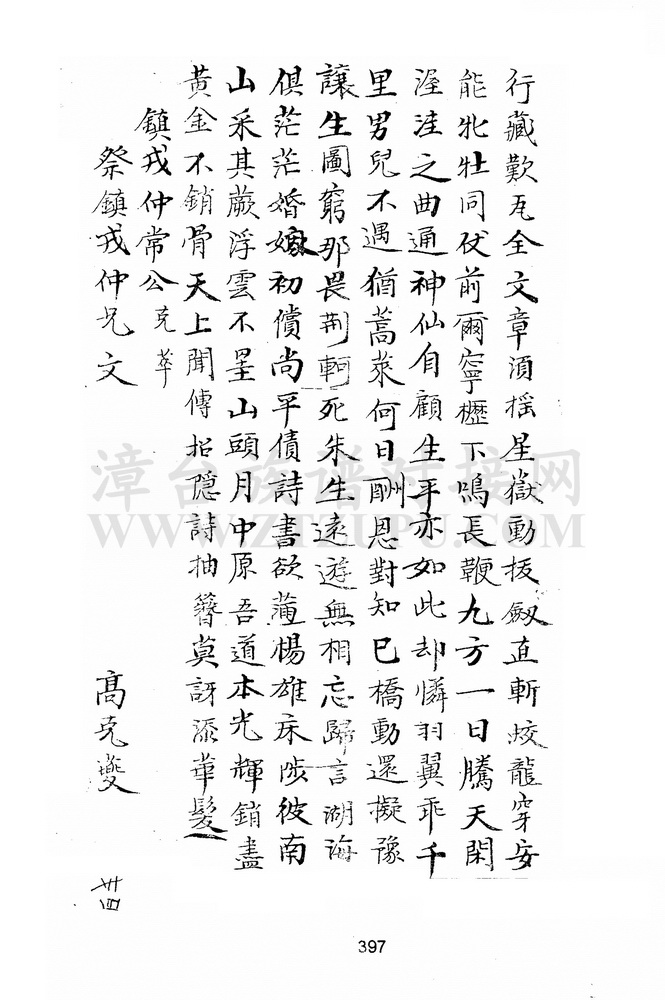 行藏歎瓦全文章須搖星嶽動拔劔直斬蛟龍穿安
能牝牡同伏前爾寧櫪下鳴長鞭九方一日騰天閑
渥洼之曲通神仙自顧生平亦如此却憐羽翼乖千
里男兒不遇猶蒿萊何日酬恩對知己橋動還擬豫
讓生圖窮那畏荆軻死朱生遠遊無相忘歸言湖海
俱茫茫婚嫁初償尚平債詩書欲蒲楊雄床陟彼南
山采其蕨浮雲不星山頭月中原吾道本光輝銷盡
黃金不銷骨天上聞傳招隠詩抽簪莫訝添華髮
鎮戎仲常公克萃
祭鎮戎仲兄文 高克燮
卅四
397
漳台族谱对接网
WWW.ZTZUPU.COM